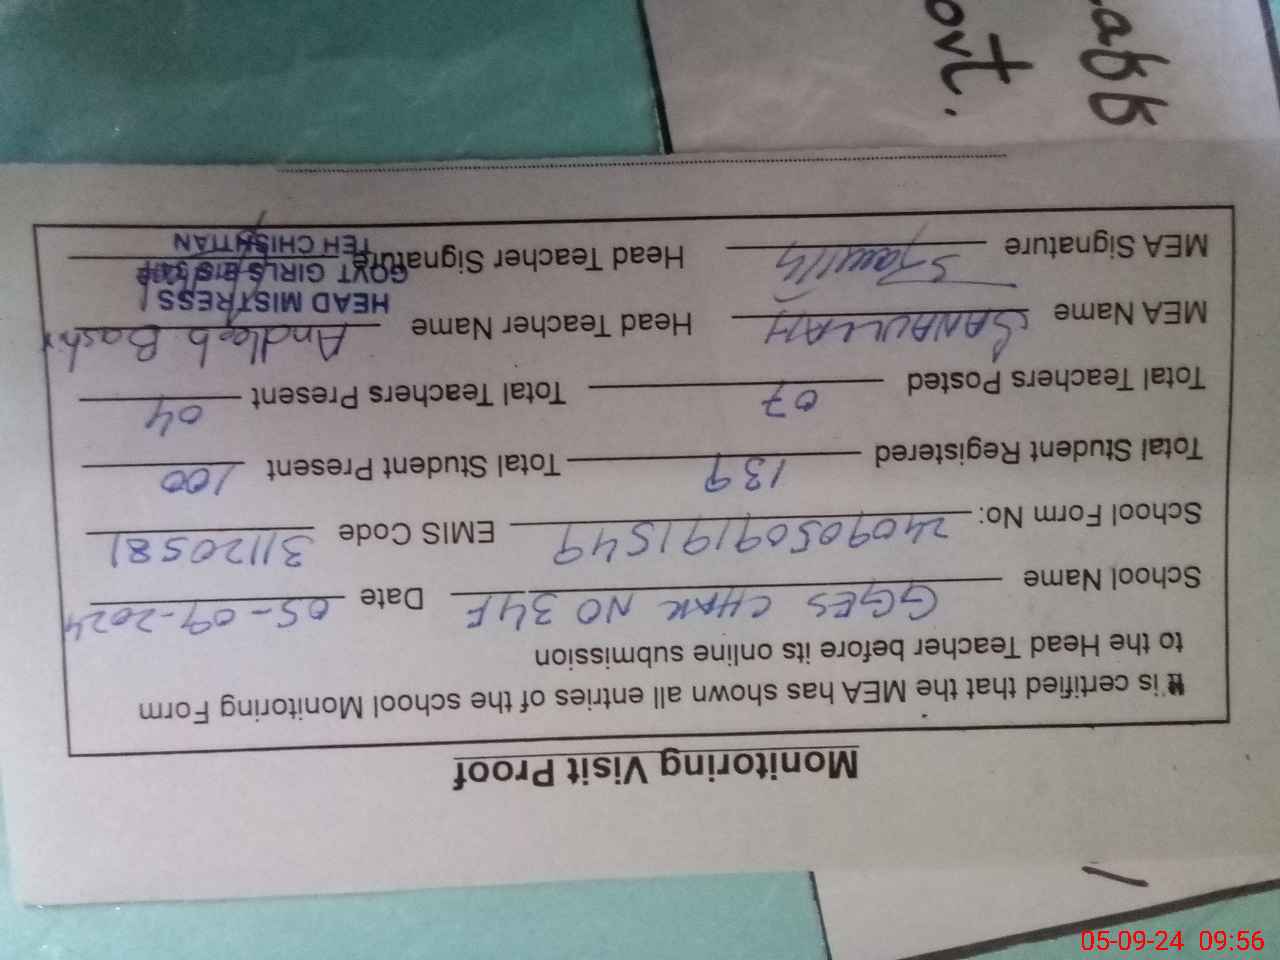 Monitoring Visit Proof
It is certified that the MEA has shown all entries of the school Monitoring Form
to the Head Teacher before its online submission
School Name GGES CHAK NO 34F Date 05-09-2024
School Form No: 24090509191549 EMIS Code 31120581
Total Student Registered 139 Total Student Present 100
Total Teachers Posted 07 Total Teachers Present 04
MEA Name SANAULLAH Head Teacher Name Andleeb Bashir
HEAD MISTRESS
MEA Signature Head Teacher Signature
GOVT GIRLS
TEH CHISHTIAN
ovt.
05-09-24 09:56